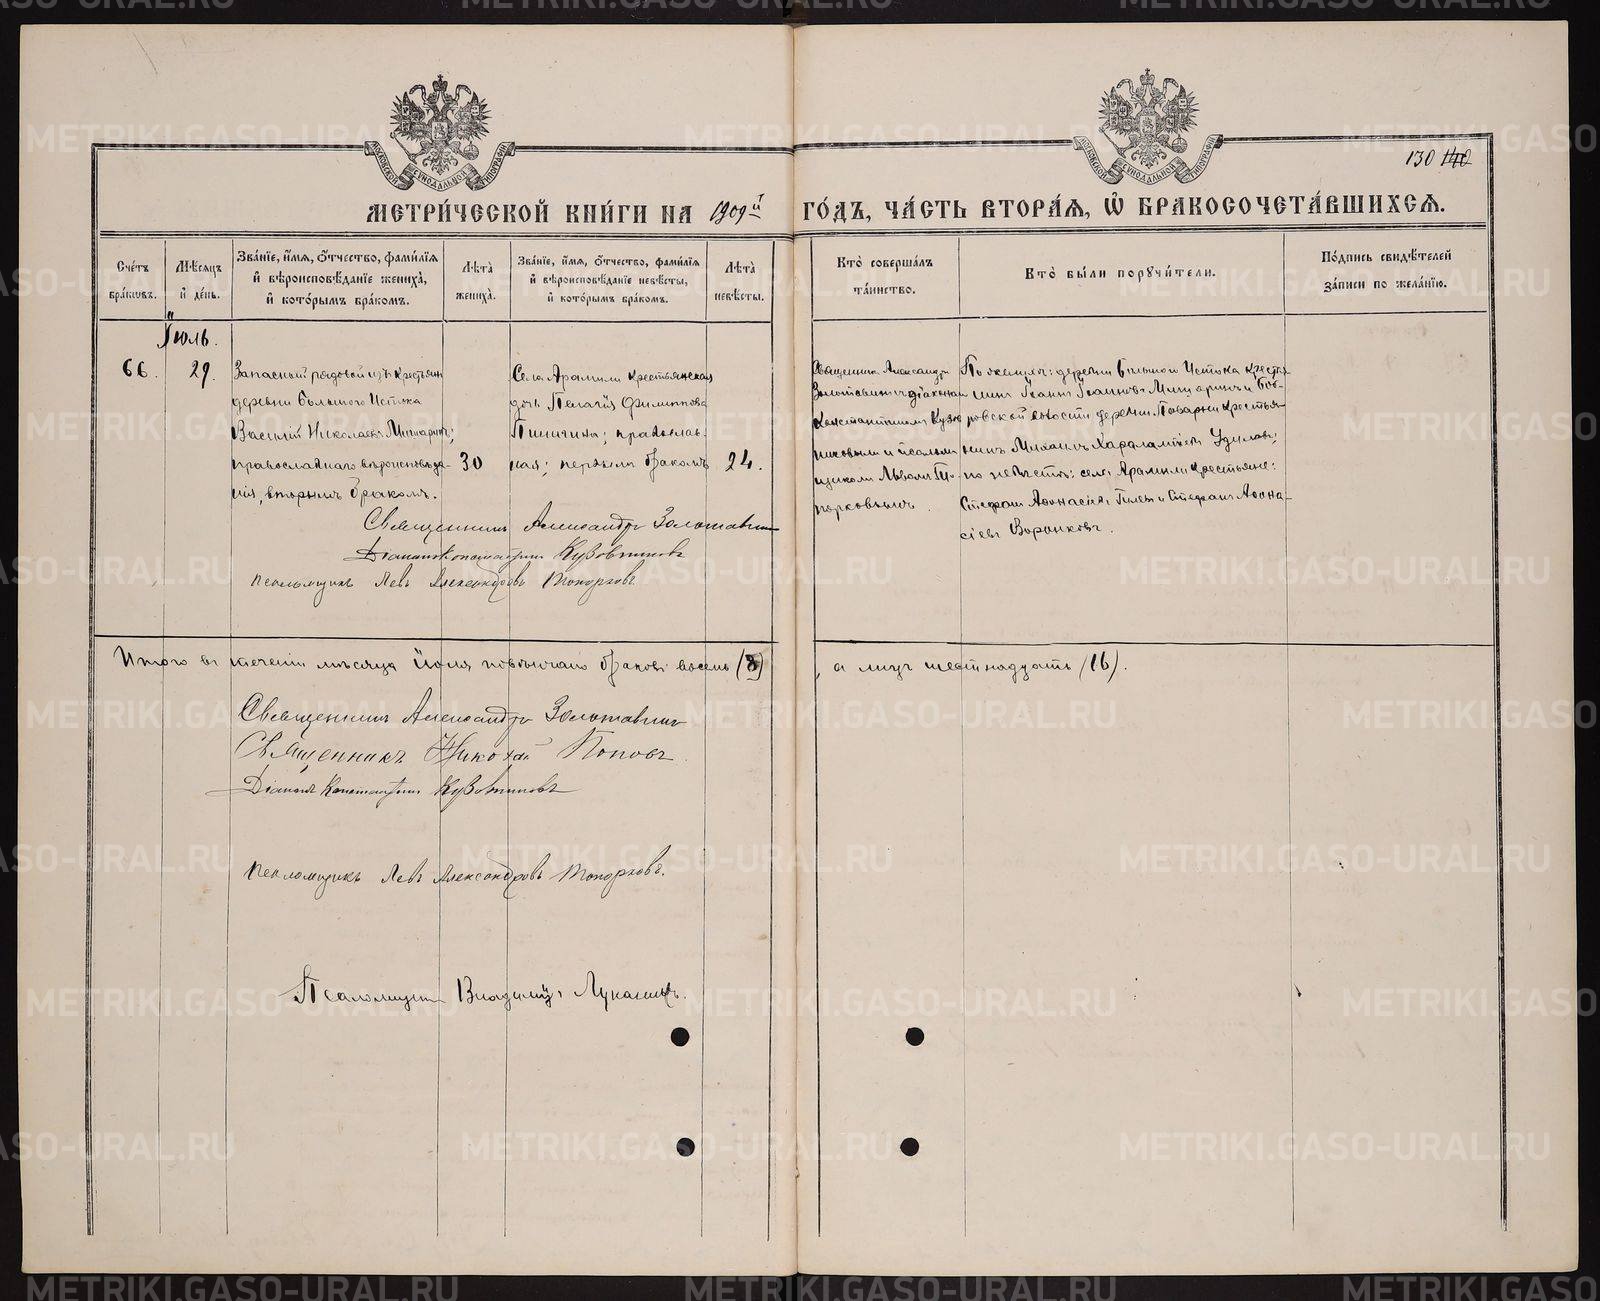 МОСКОВСКОЙ СѴНОДАЛЬНОЙ ТИПОГРАФІИ
МОСКОВСКОЙ СѴНОДАЛЬНОЙ ТИПОГРАФІИ
130 140
МЕТРИ́ЧЕСКОЙ КНИ́ГИ НА 1909й
ГО́ДЪ, ЧА́СТЬ ВТОРА́Ѧ, Ѡ҆ БРАКОСОЧЕТА́ВШИХСѦ.
Сче́тъ бра́кѡвъ.
Мѣ́сѧцъ и҆ де́нь.
Зва́нїе, и҆́мѧ, ѻ҆́тчество, фами́лїѧ и҆ вѣроисповѣ́данїе жениха̀, и҆ кото́рымъ бра́комъ.
Лѣ́та жениха̀.
Зва́нїе, и҆́мѧ, ѻ҆́тчество, фами́лїѧ и҆ вѣроисповѣ́данїе невѣ́сты, и҆ кото́рымъ бра́комъ.
Лѣ́та невѣ́сты.
Кто̀ соверша́лъ та́инство.
Кто̀ бы́ли порꙋчи́тели.
По́дпись свидѣ́телей за́писи по жела́нїю.
Іюль.
66.
29.
Запасный рядовой изъ крестьян
деревни Большого Истока
Василій Николаевъ Мишаринъ;
православнаго вѣроисповѣда-
нія, вторымъ бракомъ.
30
Села Арамили крестьянская
дочь Пелагія Филиппова
Пиничина; православ-
ная; первымъ бракомъ
24.
Священникъ Александръ
Золотавинъ діаконъ
Константиномъ Кузов
никовымъ и псалом
щикомъ Львомъ То-
порковымъ.
По женихѣ: деревни Большого Истока кресть-
янинъ Іоаннъ Іоанновъ Мишаринъ и Боб-
ровской волости деревни Поварни крестья-
нинъ Михаилъ Харалампіевъ Удиловъ;
по невѣстѣ: села Арамили крестьяне:
Стефанъ Аѳонасіевъ Гилевъ и Стефанъ Аѳона-
сіевъ Воронковъ.
Священникъ Александръ Золотавинъ
Діаконъ Константинъ Кузовниковъ
псаломщикъ Левъ Александровъ Топорковъ.
Итого въ теченіи мѣсяца Іюля повѣнчано браковъ восемь (8)
, а лицъ шестнадцать (16).
Священникъ Александръ Золотавинъ
Священникъ Николай Поповъ
Діаконъ Константинъ Кузовниковъ
псаломщикъ Левъ Александровъ Топорковъ.
Псаломщикъ Владиміръ Луканинъ.
METRIKI.GASO-URAL.RU